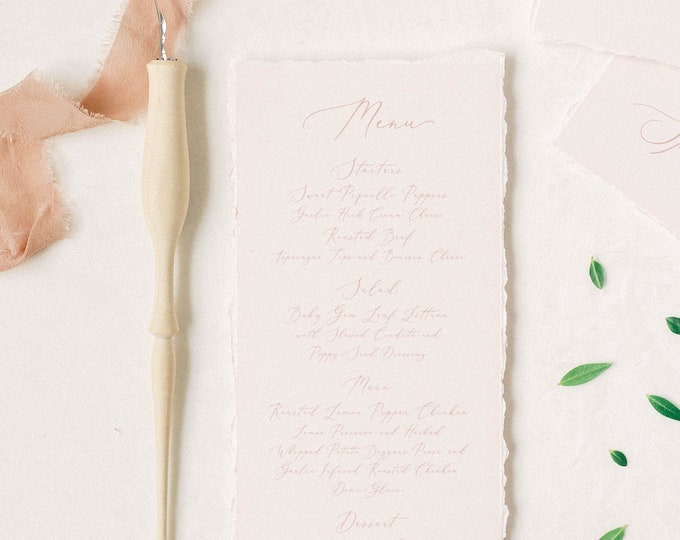 Menu
Starters
Sweet Piquillo Peppers
Garlic Herb Cream Cheese
Roasted Beef
Asparagus Tips and Boursin Cheese
Salad
Baby Gem Leaf Lettuce
with Sliced and
Poppy Seed Dressing
Main
Roasted Lemon Pepper Chicken
Lemon Preserve and Herbed
Whipped Potato Puree and
Garlic Infused Roasted Chicken
Demi Glace
Dessert